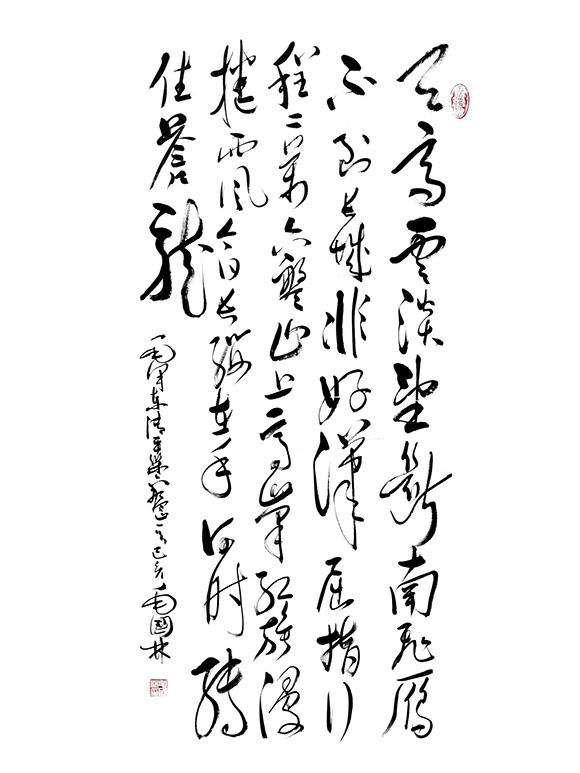 天高雲淡望斷南飛雁
不到長城非好漢屈指行
程二萬六盤山上高峰紅旗漫
捲西風今日長纓在手何時縛
住蒼龍
毛澤東清平樂六盤山一首己亥毛國林